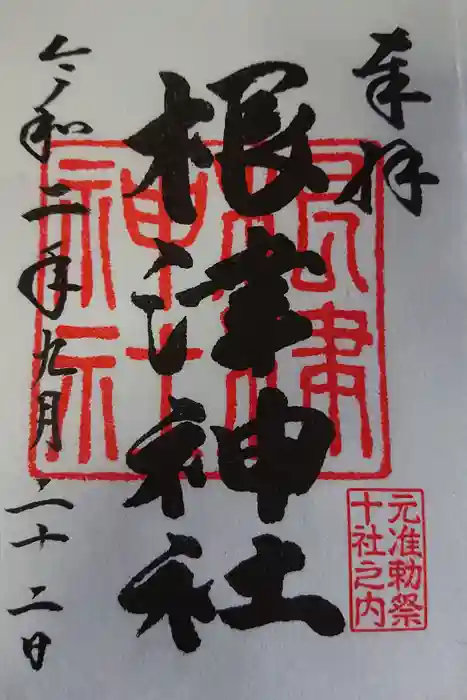 奉拝
根津神社
令和二年九月二十二日
根津神社
元准勅祭
十社之内